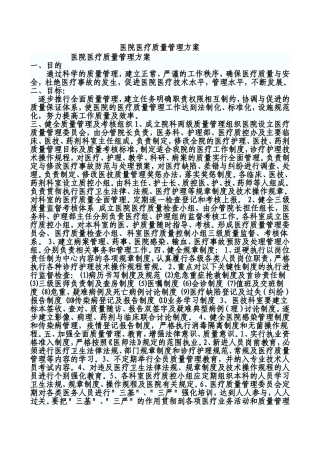 医院医疗质量管理方案
医院医疗质量管理方案
一、目的
通过科学的质量管理，建立正常、严谨的工作秩序，确保医疗质量与安
全，杜绝医疗事故的发生，促进医院医疗技术水平，管理水平，不断发展。
二、目标：
逐步推行全面质量管理，建立任务明确职责权限相互制约，协调与促进的
质量保证体系，使医院的医疗质量管理工作达到法制化、标准化，设施规范
化，努力提高工作质量及效率。
三、健全质量管理及考核组织1、成立院科两级质量管理组织医院设立医疗
质量管理委员会，由分管院长负责，医务科、护理部、医疗质控办及主要临
床、医技、药剂科室主任组成。负责制定，修改全院的医疗、护理、医技、药
剂质量管理目标及质量考核标准，制定适合我院的医疗工作制度，诊疗护理技
术操作规程，对医疗、护理、教学、科研、病案的质量实行全面管理。负责制定
与修改医疗事故防范与处理预案，对医疗缺陷、差错与纠纷进行调查、处
理。负责制定医技质量管理奖惩办法，落实奖惩制度。各临床、医技、
药剂科室设立质控小组，由科主任、护士长、质控医、护、技、药师等人组成。
负责贯彻执行医疗卫生法律、法规、医疗护理等规章制度及技术操作规章。
对科室的医疗质量全面管理。定期逐一检查登记和考核上报。2、健全三级质
量监督考核体系 成立医院医疗质量检查小组，由分管院长担任组长，医
务科、护理部主任分别负责医疗组、护理组的监督考核工作。各科室成立医
疗质控小组。对本科室的医疗质量随时指导、考核。形成医疗质量管理委
员会、医疗质量检查小组、科室医疗质量控制小组三级质量监督、考核体
系。3、建立病案管理、药事、医院感染、输血、医疗事故预防及处理管理小
组，分别负责相关事务和管理工作。四、健全规章制度：1、进硬执行以岗位
责任制为中心内容的各项规章制度，认真履行各级各类人员岗位职责，严格
执行各种诊疗护理技术操作规程常规。2、重点对以下关键性制度的执行进
行监督检查：⑴病历书写制度及规范⑵危急重症抢救制度及首诊责任制
⑶三级医师负责制及查房制度⑸医嘱制度⑹会诊制度⑺值班及交班制
度⑻危重、疑难病例及死亡病例讨论制度⑼医疗缺陷登记及过失(纠纷)
报告制度⑽传染病登记及报告制度⑾业务学习制度 3、医技科室要建立
标本签收、查对、质量随访、报告双签字及疑难典型病例(理)讨论制度。逐
步建立影像、病理、药剂与临床联合讨论制度。4、健全医院感染管理制度
和传染病管理、疫情登记报告制度，严格执行消毒隔离制度和无菌操作规
程。五、加强全面质量管理、教育，增强法律意识、质量意识。1、实行执业资
格准入制度，严格按照《医师法》规定的范围执业。2、新进人员岗前教育，必
须进行医疗卫生法律法规，部门规章制度和诊疗护理规范、常规及医疗质量
管理等内容的学习。3、不定期举行全员质量管理教育，并纳入专业技术人
员考试内容。4、对违反医疗卫生法律法规、规章制度及技术操作规程的人
员进行个别强化教育。5、各科室医疗质控小组应定期组织本科人员学习卫
生法规，规章制度、操作规程及医院有关规定。6、医疗质量管理委员会定期
对各类医务人员进行"三基"、"三严"强化培训，达到人人参与，人人过
关，要把"三基"、"三严"的作用贯彻到各项医疗业务活动和质量管理